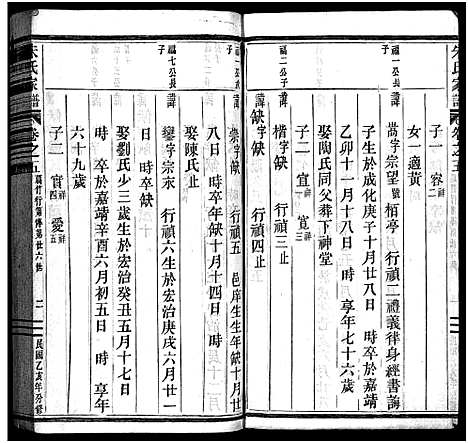 朱氏家譜 卷之五
子一 容 祥二
女一適黃
福一公長子 諱
嵩字宗望號栢亭 行禎二禮義律身經書誨
子生於成化庚子十月廿六日 時卒於嘉靖
乙卯十一月十八日 時 享年七十六歲
娶陶氏同父葬下神堂
子二 宣 祥一 寬 祥三
福二公子 諱
楷字缺 行禎三止
諱
缺字缺 行禎四止
福一公次子 諱
崇字缺 行禎五 邑庠生生年缺十月廿
八日 時卒年缺十月十四日 時
娶陳氏止
福七公長子 諱
鑾字宗永 行禎六生於宏治庚戌六月廿一
日 時卒缺
娶劉氏少三歲生於宏治癸丑五月十七日
時 卒於嘉靖辛酉六月初五日 時 享年
六十九歲
子二 實 祥四 愛 祥五
朱氏家譜 卷之五
民國乙亥年分修